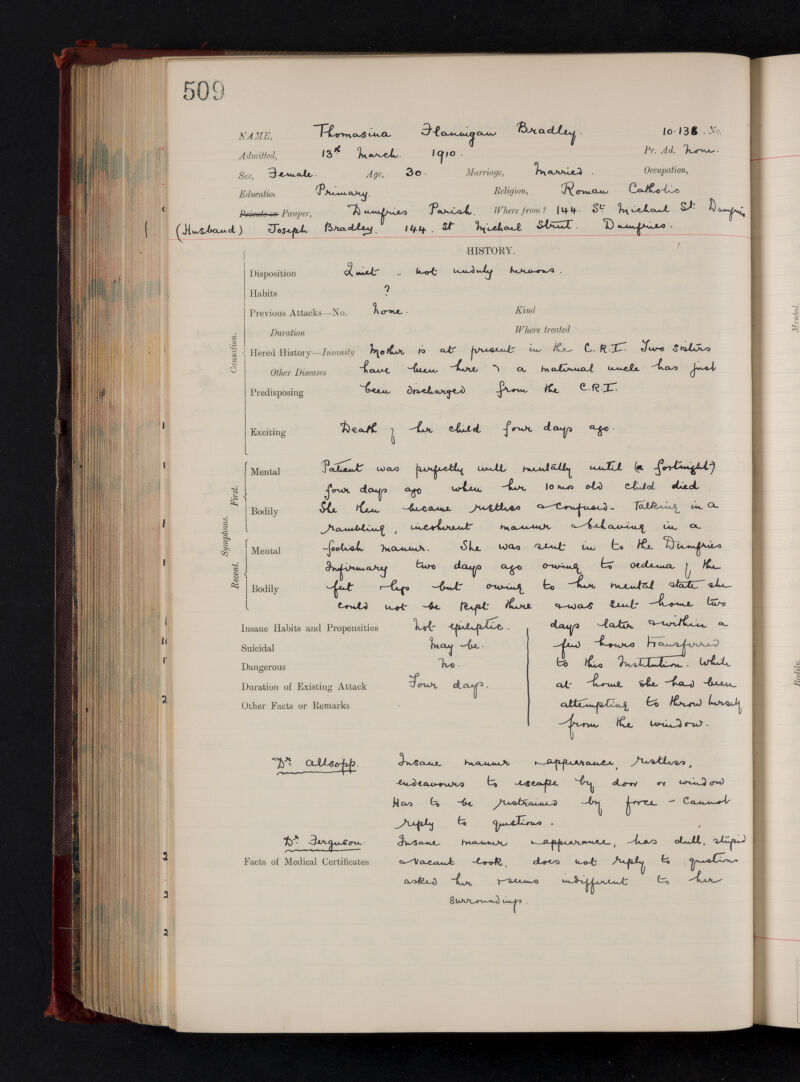 509
NAME, Thomasina Flannigan Bradley. 10-138. No.
Admitted, 13th March. 1910. Pr. Ad. None.
Sex, Female. Age, 30. Marriage, Married. Occupation,
Education Primary. Religion, Roman Catholic
Private or Pauper, Dumfries Parish. Where from? 144. St Michael St. Dumfries
(Husband) Joseph Bradley. 144. St Michael Street. Dumfries.
HISTORY.
Disposition Quiet - not unduly nervous.
Habits ?
Previous Attacks—No. None. Kind
Duration Where treated
Causation.
Hered History—Insanity Mother is at present in the C.R.I. Two Sisters
Other Diseases have been here & a maternal uncle has just
Predisposing been discharged from the C.R.I.
Exciting Death of her child four days ago.
Symptoms. First.
Mental Patient was perfectly well mentally until (a fortnight?)
four days ago when her 10 mos old child died
Bodily She then became restless & confused - Talking in a
rambling, incoherent manner & behaving in a
Recent.
Mental foolish manner. She was sent in to the Dumfries
Infirmary two days ago owing to oedema of the
Bodily feet & legs but owing to her mental state she
could not be kept there & was sent home two
Insane Habits and Propensities Not epileptic. days later & within a
Suicidal May be. few hours transferred
Dangerous No. to this Institution. While
Duration of Existing Attack Four days. at home she had been
Other Facts or Remarks attempting to throw herself
from the window.
Dr. Allsopp. Insane manner & appearance, restless,
endeavours to escape by door or window
Has to be restrained by force - Cannot
reply to questions.
Dr. Ferguson. Insane manner & appearance, has dull, stupid
Facts of Medical Certificates & vacant look, does not reply to questions
asked her & seems indifferent to her
surroundings.
Mental.
Bodily.